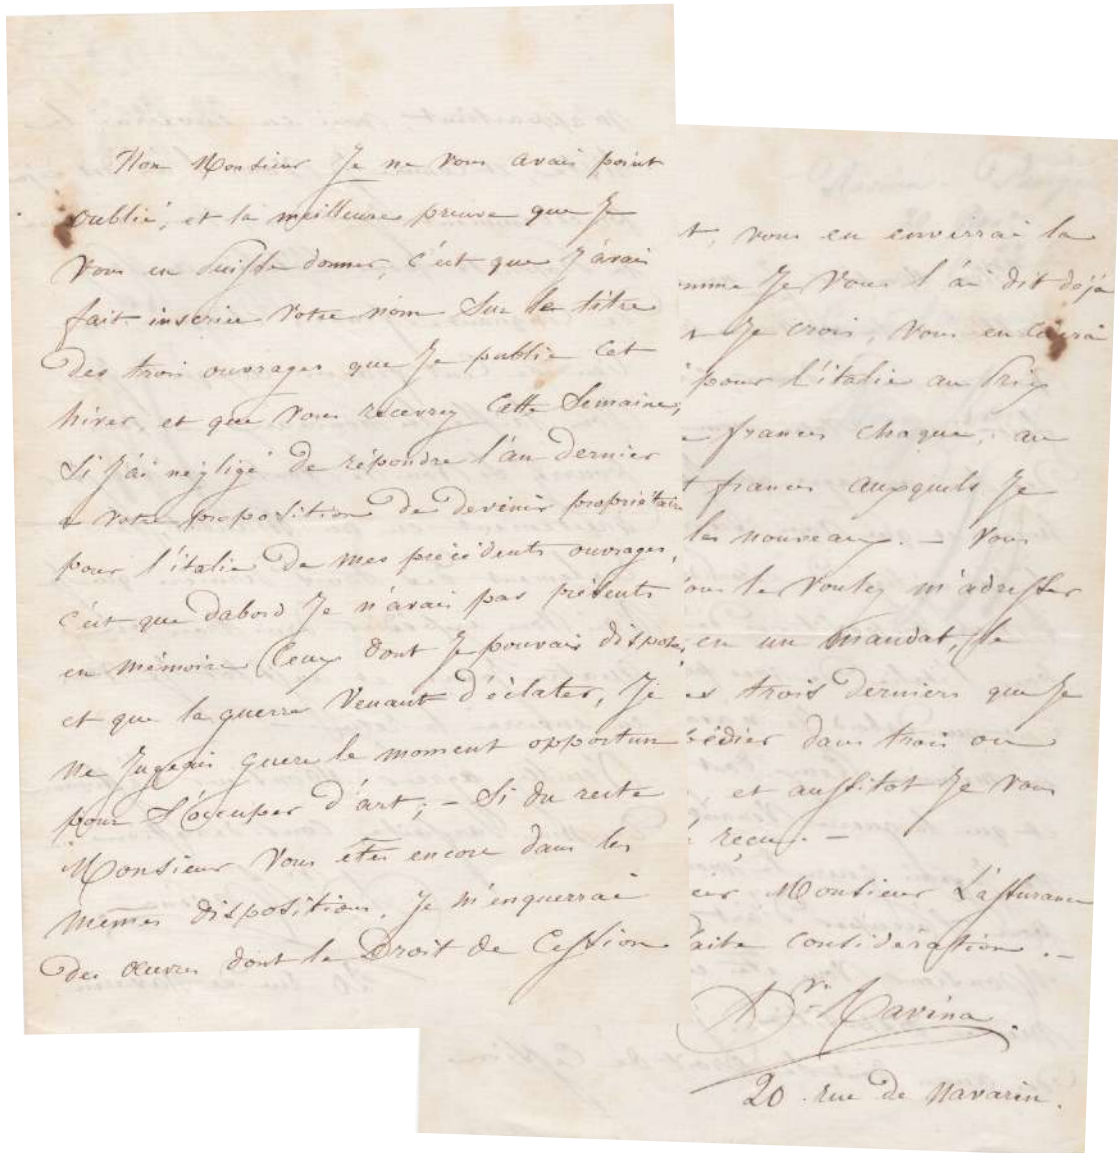 Non Monsieur Je ne vous avais point
oublié, et la meilleure preuve que Je
vous en puisse donner, c'est que J'avais
fait inscrire votre nom Sur le titre
des trois ouvrages que Je publie cet
hiver, et que vous recevrez cette Semaine,
Si J'ai négligé de répondre l'an dernier
a votre proposition de devenir propriétaire
pour l'italie de mes précédents ouvrages,
c'est que dabord Je n'avais pas présents
en mémoire Ceux dont Je pouvais dispos
et que la guerre Venant d'éclater, Je
ne Jugeais guere le moment opportun
pour S'occuper d'art; – Si du reste
Monsieur Vous êtes encore dans les
mêmes dispositions, Je m'enquerrai
des œuvres dont le Droit de Cession
t, vous en enverrai la
mme Je Vous l'ai dit dejà
Je crois, vous en
pour l'italie au prix
e francs chaque, au
t francs auxquels Je
les nouveaux. – Vous
le Voulez m'adresser
en un mandat, le
s trois derniers que Je
édier dans trois ou
, et aussitot Je vous
reçu. –
eur Monsieur L'assurance
faite considération. –
Ravina.
20 rue de Navarin.